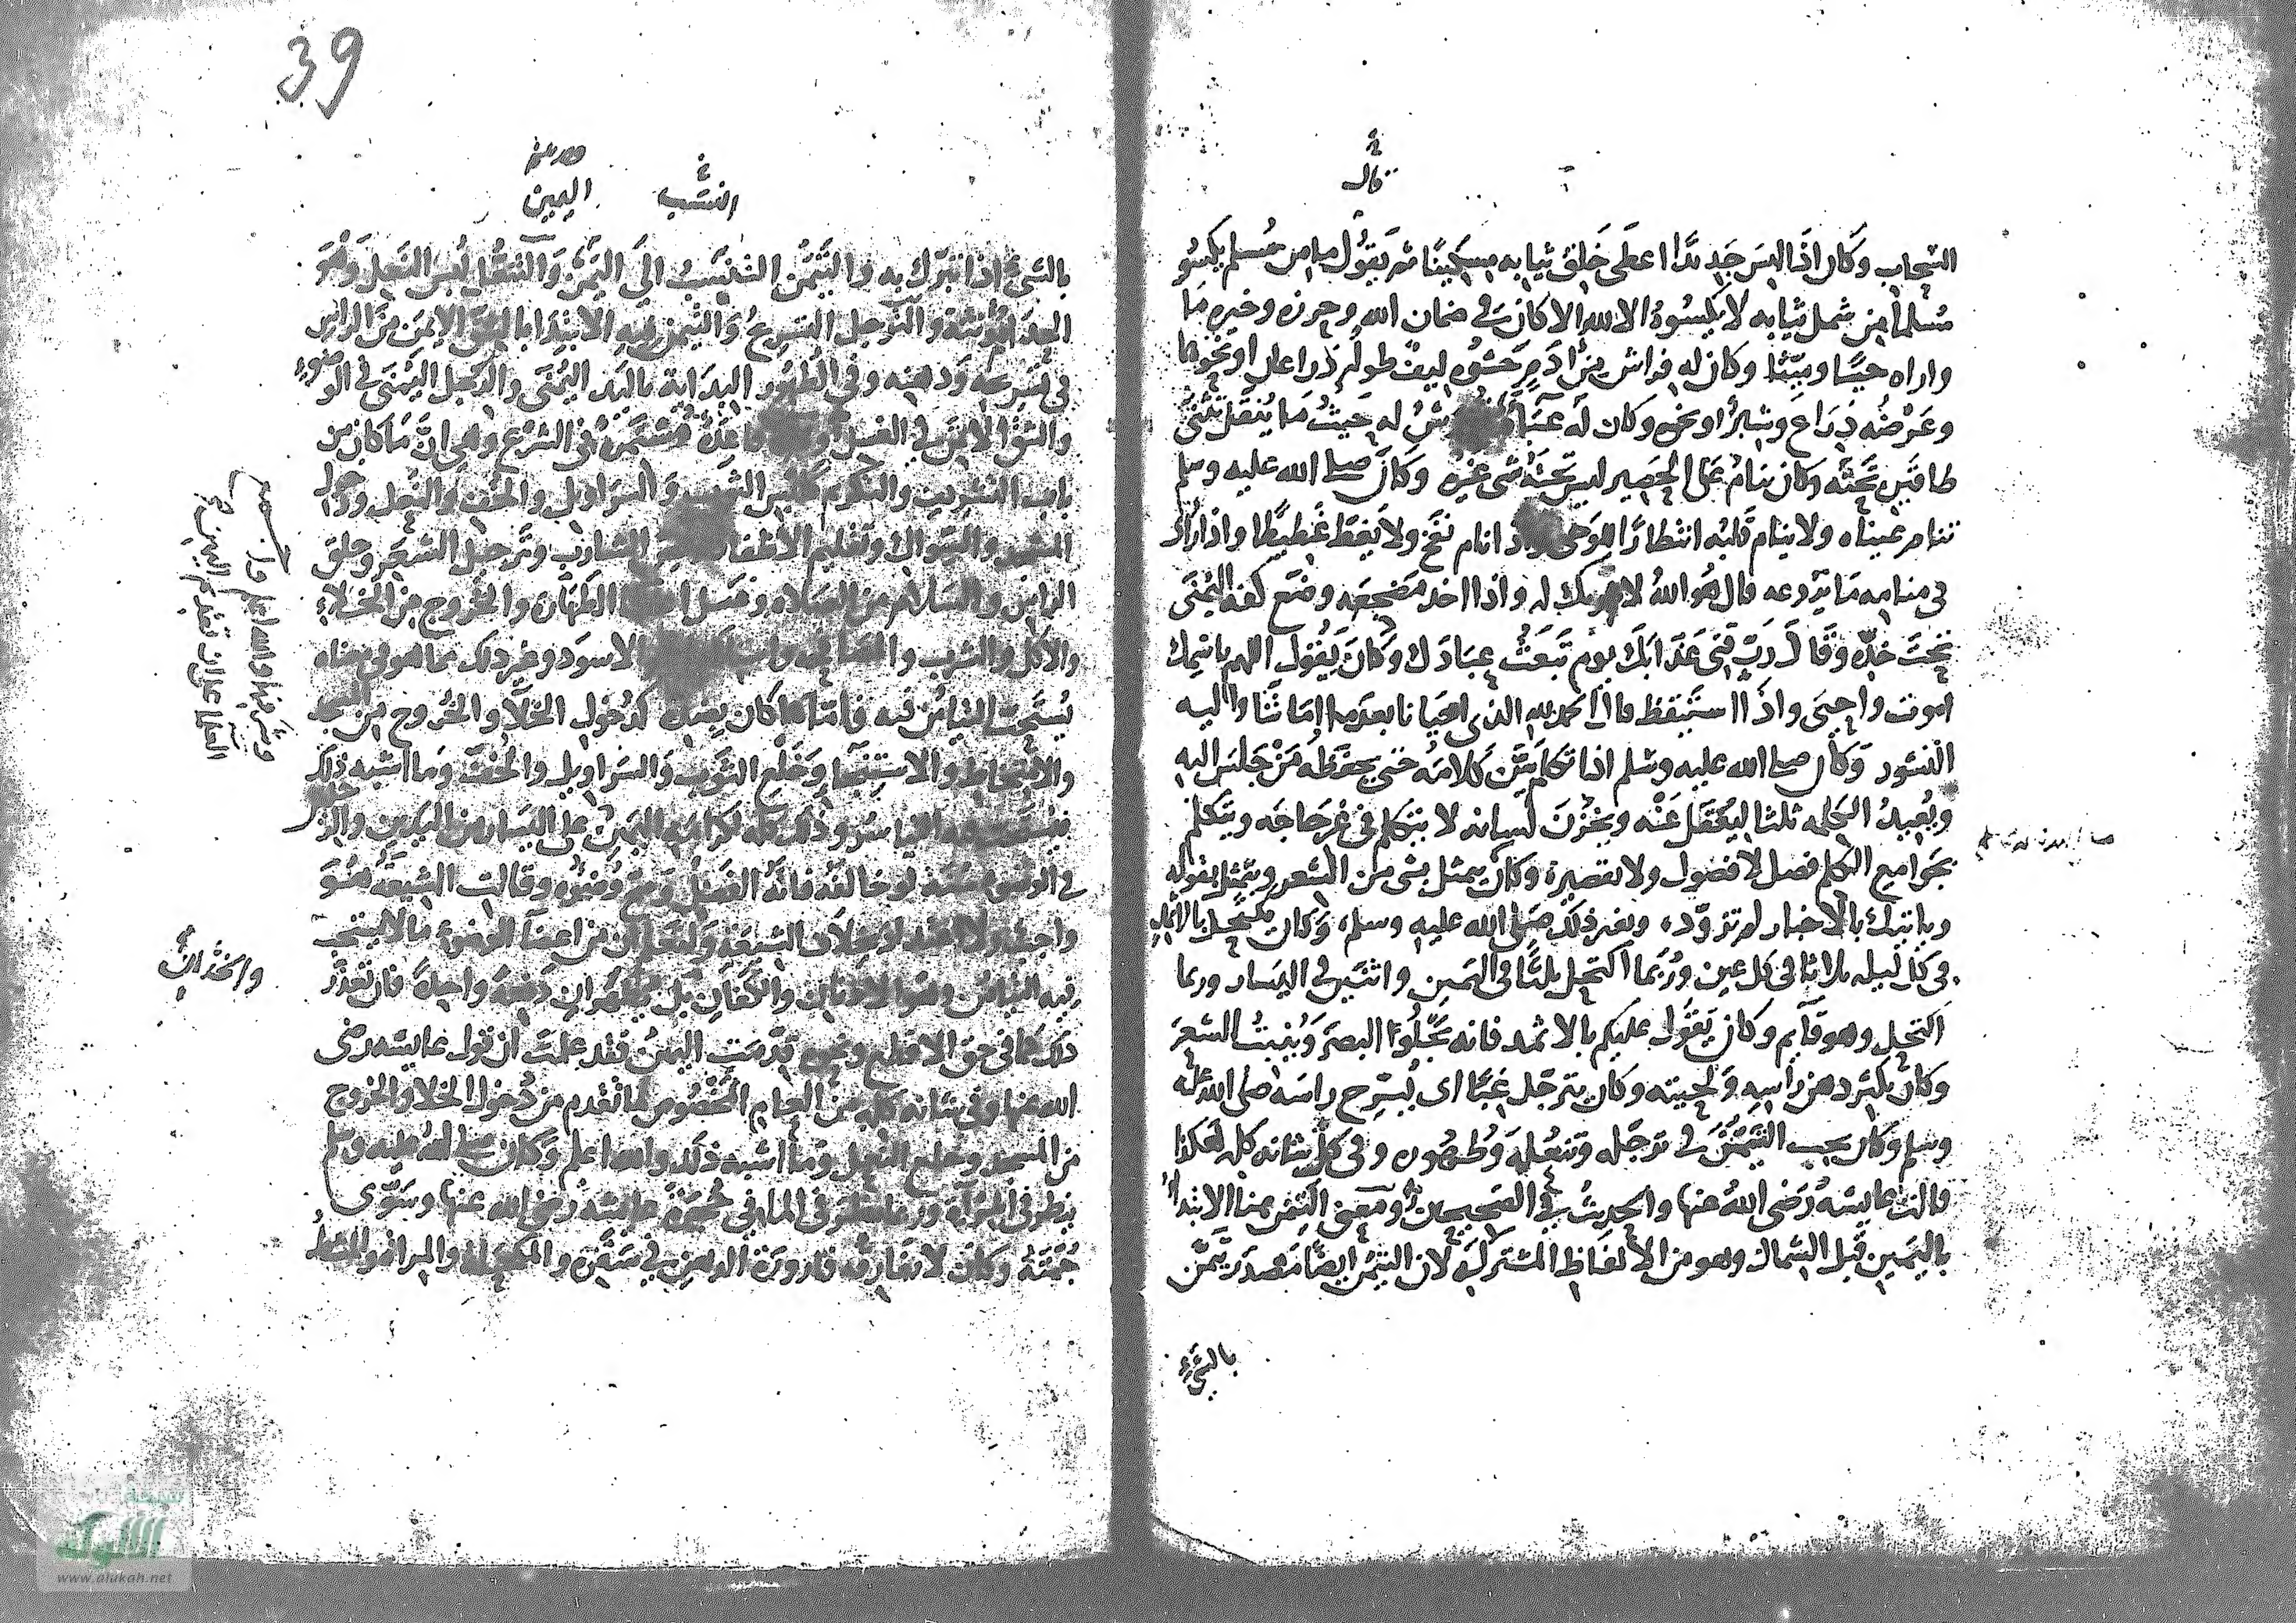 قال
السحاب وكان اذا لبس جديدا اعطى خلق ثيابه مسكينا ثم يقول ما من مسلم يكسو
مسلما من شمل ثيابه لا يكسوه الا لله الا كان في ضمان الله وحرزه وخيره ما
واراه حيا وميتا وكان له فراش من ادم حشوه ليف طوله ذراعان او نحوهما
وعرضه ذراع وشبر او نحوه وكان له عباة تفرش له حيث ما ينقل تثنى
طاقتين تحته وكان ينام على الحصير ليس تحته شى غيره وكان صلى الله عليه وسلم
تنام عيناه ولا ينام قلبه انتظارا للوحى واذا نام نفخ ولا يغط غطيطا واذا راى
في منامه ما يروعه قال هو الله لا شريك له واذا اخذ مضجعه وضع كفه اليمنى
تحت خده وقال رب قنى عذابك يوم تبعث عبادك وكان يقول اللهم باسمك
اموت واحيى واذا استيقظ قال الحمد لله الذى احيانا بعد ما اماتنا واليه
النشور وكان صلى الله عليه وسلم اذا تكلم بين كلامه حتى يحفظه من جلس اليه
ويعيد الكلمه ثلثا ليعقل عنه ويخزن لسانه لا يتكلم في غير حاجه ويتكلم
بجوامع الكلم فصل لا فضول ولا تقصير وكان يتمثل بشى من الشعر ويتمثل بقوله
وياتيك بالاخبار لم تزود وبغير ذلك صلى الله عليه وسلم وكان يكتحل بالاثمد
في كل ليله ثلاثا في كل عين وربما اكتحل ثلثا في اليمين واثنتين في اليسار وربما
اكتحل وهو قايم وكان يقول عليكم بالاثمد فانه يجلوا البصر وينبت الشعر
وكان يكثر دهن راسه ولحيته وكان يترجل غبا اى يسرح راسه صلى الله عليه
وسلم وكان يحب التيمن في ترجله وتنعله وطهوره وفي شانه كله هكذا
قالت عايشه رضى الله عنها والحديث في الصحيحين ومعنى التيمن هنا الابتدا
باليمين قبل الشمال وهو من الالفاظ المشتركه لان التيمن ايضا مصدر تيمن
بالشىء
39
النسب اليمين
بالشىء اذا تبرك به والتيمن التنسب الى اليمن والتنعل لبس النعل وهو
والترجل التسريح والتيمن فيه الابتدا بالشق الايمن من الراس
في تسريحه ودهنه وفي الطهور البداية باليد اليمنى والرجل اليمنى في الوضوء
والشق الايمن في الغسل قاعدة مستمرة في الشرع وهى ان ما كان من
باب التشريف والتكريم كلبس الثوب والسراويل والخف والنعل ودخول
المسجد والسواك وتقليم الاظفار الشارب وترجيل الشعر وحلق
الراس والسلام من الصلاه وغسل الطهارة والخروج من الخلاء
والاكل والشرب الاسود وغير ذلك مما هو في معناه
يستحب التيامن فيه واما ما كان بضده كدخول الخلا والخروج من المسجد
والامتخاط والاستنجا وخلع الثوب والسراويل والخف وما اشبه ذلك
فيستحب فيه التياسر وذلك كله لكرامة اليمين على اليسار من اليدين والرجلين
في الوضوء سنة لو خالفه فاته الفضل وصح وضوه وقالت الشيعة هو
واجب ولا اعتداد بخلاف الشيعة ولتعلم ان من اعضا الوضوء ما لا يستحب
فيه التيامن وهو الاذنان والكفان بل يطهران دفعة واحدة فان تعذر
والخدان
ذلك كما في حق الاقطع ونحوه قدمت اليمين فقد علمت ان قول عايشه رضى
الله عنها وفي شانه كله من العام المخصوص لما تقدم من دخول الخلا والخروج
من المسجد وخلع النعل وما اشبه ذلك والله اعلم وكان صلى الله عليه وسلم
ينظر في المرآة وربما نظر في الما في حجرة عائشه رضى الله عنها وسوى
جمته وكان لا تفارقه قارورة الدهن في سفره والمكحلة والمراة والمشط